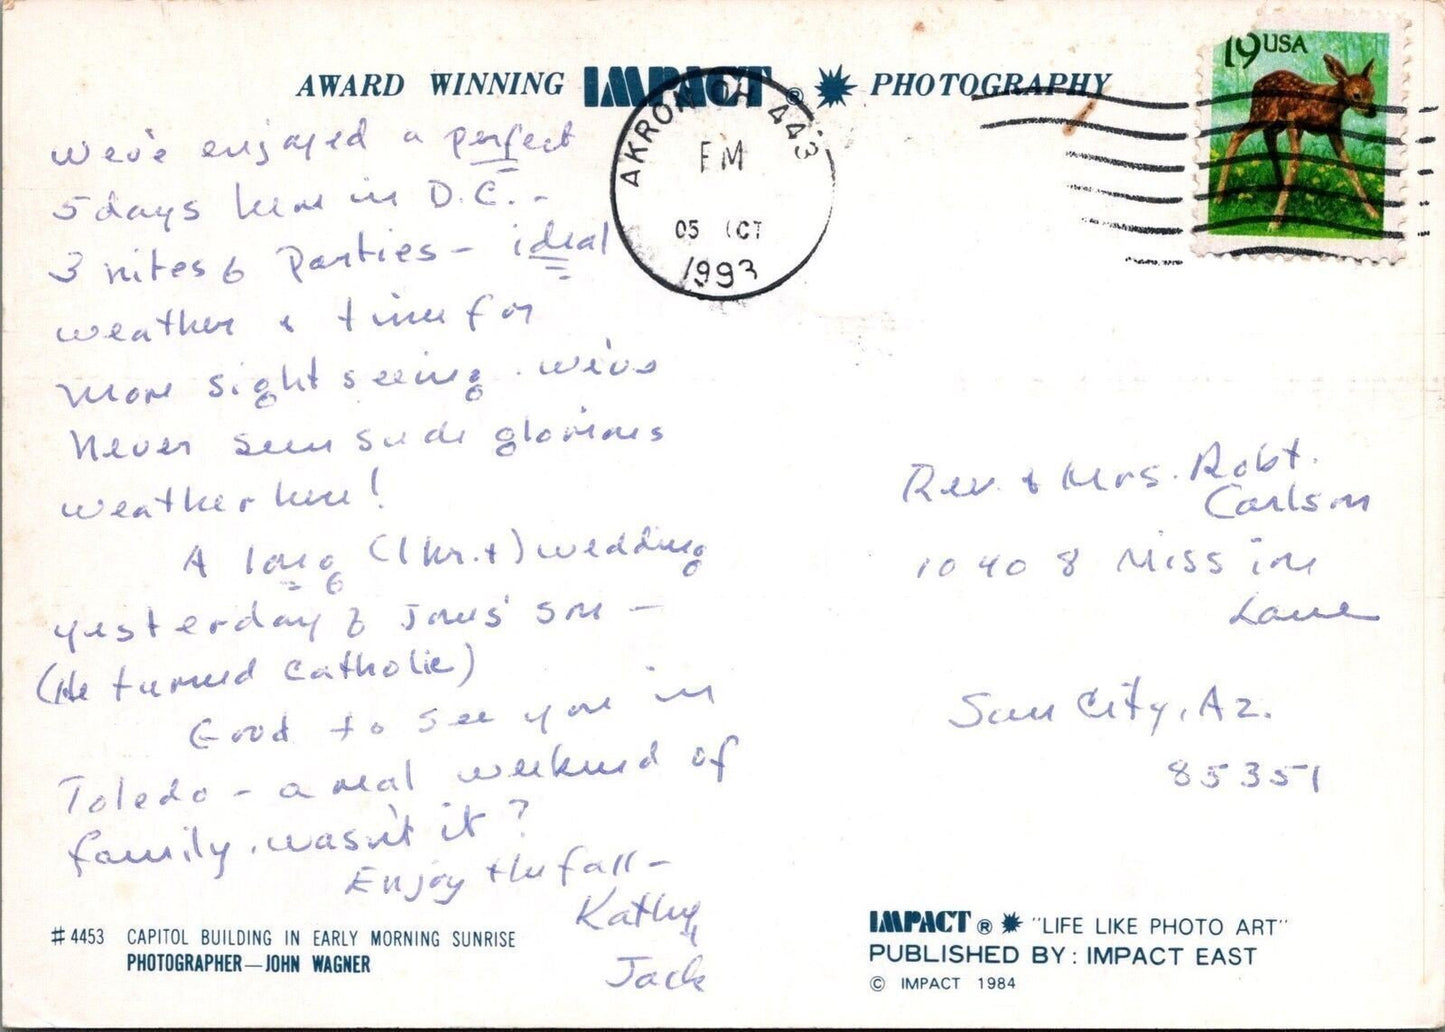 AWARD WINNING IMPACT® PHOTOGRAPHY
19 USA
AKRON OH 443
PM
05 OCT
1993
We've enjoyed a perfect
5 days here in D.C. -
3 nites 6 Parties - ideal
weather & time for
more sight seeing. We've
never seen such glorious
weather here!
A long (1 hr.+) wedding
yesterday of Jones' son -
(He turned Catholic)
Good to see you in
Toledo - a real weekend of
family. wasn't it?
Enjoy the fall -
Kathy
Jack
Rev. & Mrs. Robt.
Carlson
10408 Mission
Lane
Sun City, Az.
85351
#4453 CAPITOL BUILDING IN EARLY MORNING SUNRISE
PHOTOGRAPHER—JOHN WAGNER
IMPACT® "LIFE LIKE PHOTO ART"
PUBLISHED BY: IMPACT EAST
© IMPACT 1984